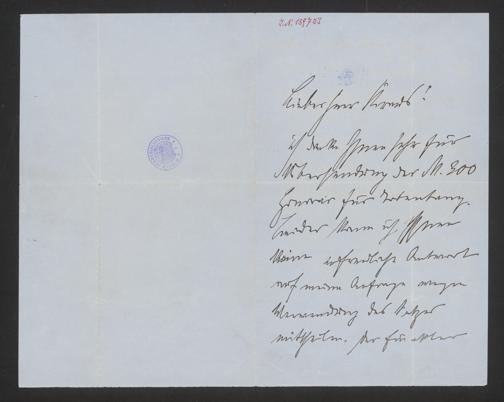 I.N. 159703
Lieber Herr
ich danke Ihnen sehr für
Übersendung der M. 300
Honorar für
Leider kann ich Ihnen
keine erfreuliche Antwort
auf meine Anfrage wegen
Verwendung des Satzes
mittheilen. Der